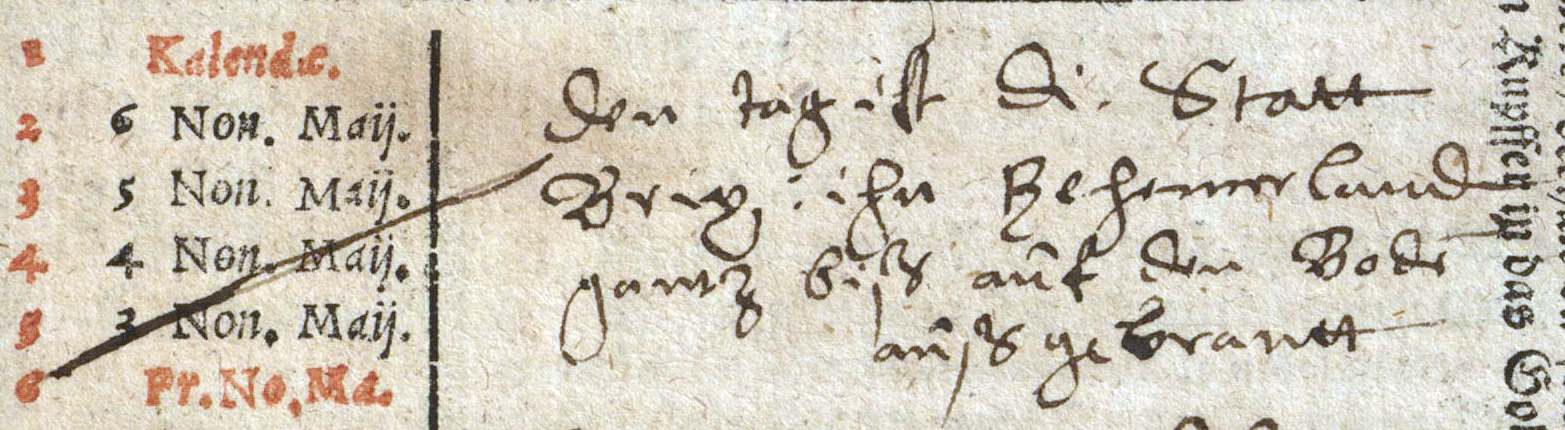 1 Kalendæ.
2 6 Non. Maij.
3 5 Non. Maij.
4 4 Non. Maij.
5 3 Non. Maij.
6 Pr. No. Ma.
Den tag ist di. Statt
Brix, ihn Behemerland
gantz biß auf den Bode
außgebrantt
n Kupffer in das Gol